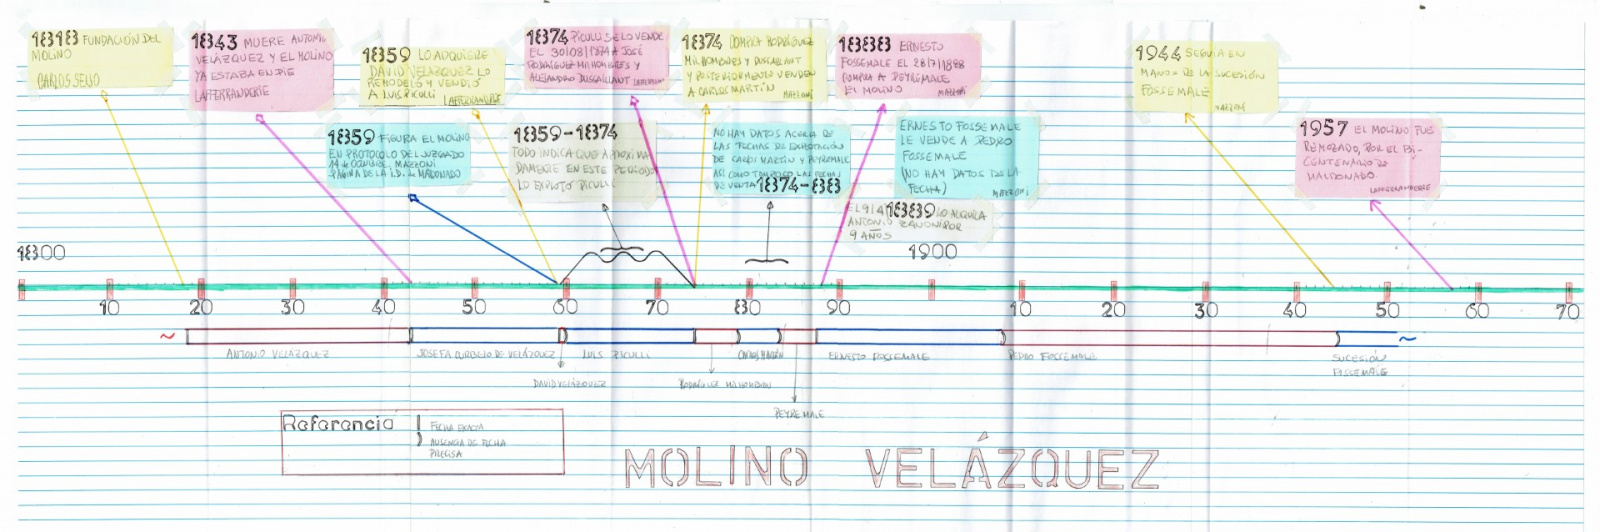 1818 FUNDACIÓN DEL
MOLINO
CARLOS SEIJO
1843 MUERE ANTONIO
VELAZQUEZ Y EL MOLINO
YA ESTABA EN PIE
LAFFERRANDERIE
1859 LO ADQUIERE
DAVID VELAZQUEZ LO
REMODELÓ Y VENDIÓ
A LUIS PICULLI
1874 PICULLI SE LO VENDE
EL 30/08/1874 A JOSÉ
RODRÍGUEZ MILHOMBRES Y
ALEJANDRO DUSSAILLANT
1874 COMPRA RODRÍGUEZ
MILHOMBRES Y DUSSAILLANT
Y POSTERIORMENTE VENDEN
A CARLOS MARTÍN MAZZONI
1888 ERNESTO
FOSSEMALE EL 28/7/1888
COMPRA A PEYREMALE
EL MOLINO MAZZONI
1944 SEGUIA EN
MANOS DE LA SUCESIÓN
FOSSEMALE MAZZONI
1859 FIGURA EL MOLINO
EN PROTOCOLO DEL JUZGADO
MAZZONI
PÁGINA DE LA I.D. de MALDONADO
1859-1874
TODO INDICA QUE APROXIMA
DAMENTE EN ESTE PERIODO
LO EXPLOTÓ PICULLI
NO HAY DATOS ACERCA DE
LAS FECHAS DE EXPLOTACIÓN
DE CARLOS MARTIN Y PEYREMALE
ASI COMO TAMPOCO LAS FECHAS
DE VENTA 1874-888
ERNESTO FOSSEMALE
LE VENDE A PEDRO
FOSSEMALE
(NO HAY DATOS DE LA
FECHA) MAZZONI
1957 EL MOLINO FUE
REMOZADO, POR EL BI-
CENTENARIO DE
MALDONADO.
1889 LO ALQUILA
ANTONIO ZANONI POR
9 AÑOS
1800 1900
10 20 30 40 50 60 70 80 90 10 20 30 40 50 60 70
ANTONIO VELAZQUEZ JOSEFA CURBELO DE VELÁZQUEZ LUIS PICULLI CARLOS MARTÍN ERNESTO FOSSEMALE PEDRO FOSSEMALE SUCESIÓN
FOSSEMALE
DAVID VELÁZQUEZ RODRÍGUEZ MILHOMBRES
PEYREMALE
Referencia
FECHA EXACTA
AUSENCIA DE FECHA
PRECISA
MOLINO VELÁZQUEZ